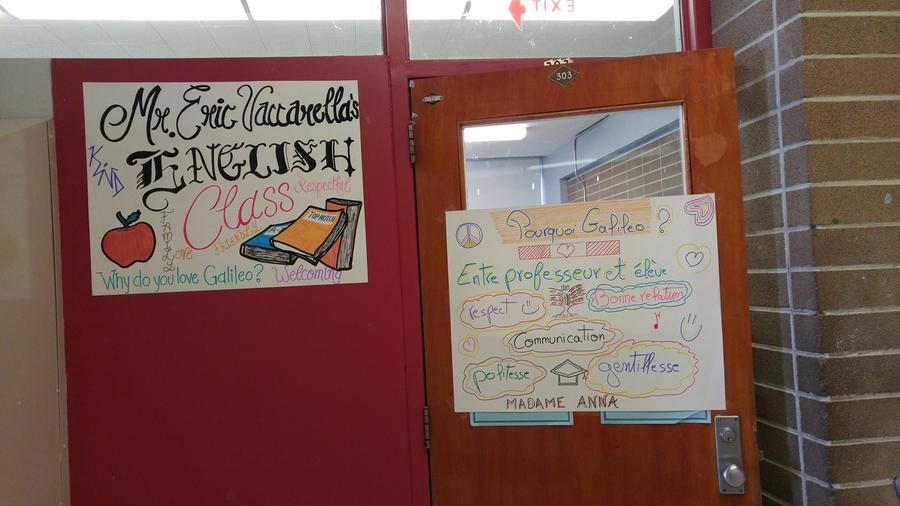 EXIT
303
Mr. Eric Vaccarella's
ENGLISH
Class
Kind
Respectful
FAMILY
Love
FRIENDLY
TOP NOTCH
Why do you love Galileo? Welcoming
Pourquoi Galileo ?
Entre professeur et élève
respect
Bonne relation
Communication
politesse
gentillesse
MADAME ANNA